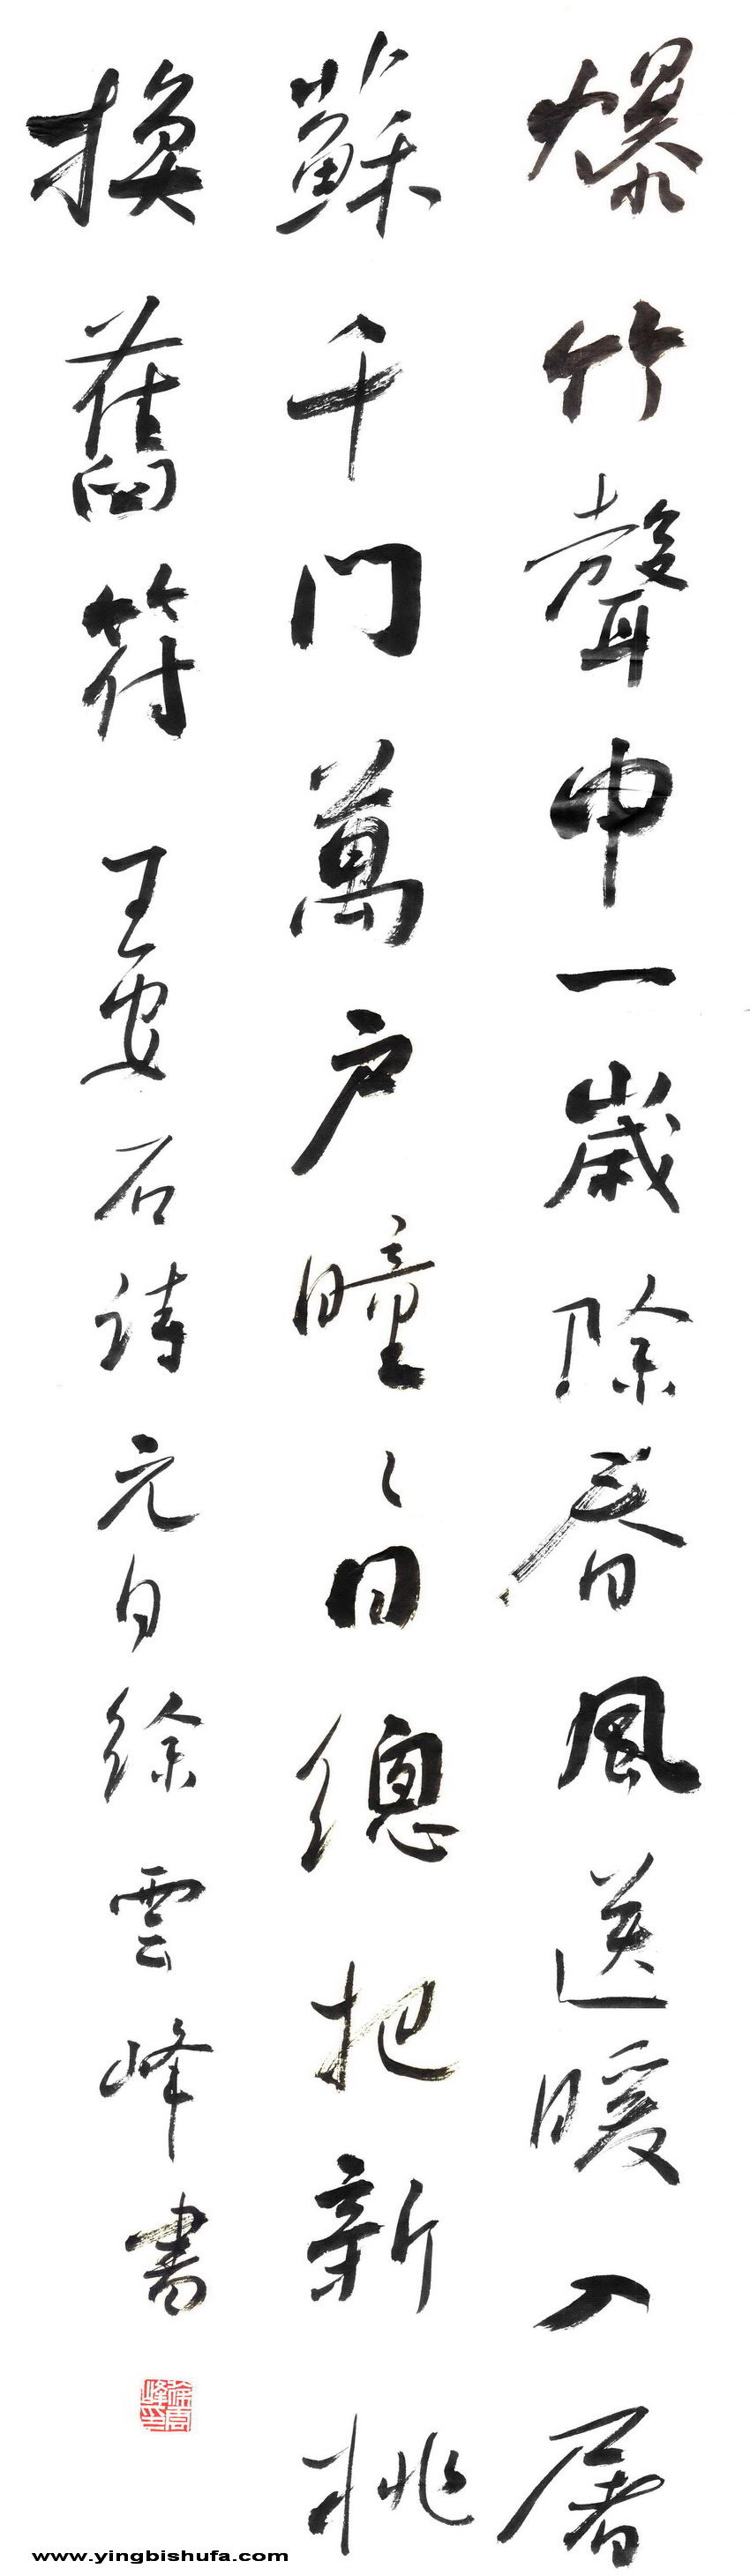 爆竹聲中一歲除春風送暖入屠
蘇千門萬戶曈〻日總把新桃
換舊符 王安石詩元日徐雲峰書
徐雲峰印
www.yingbishufa.com